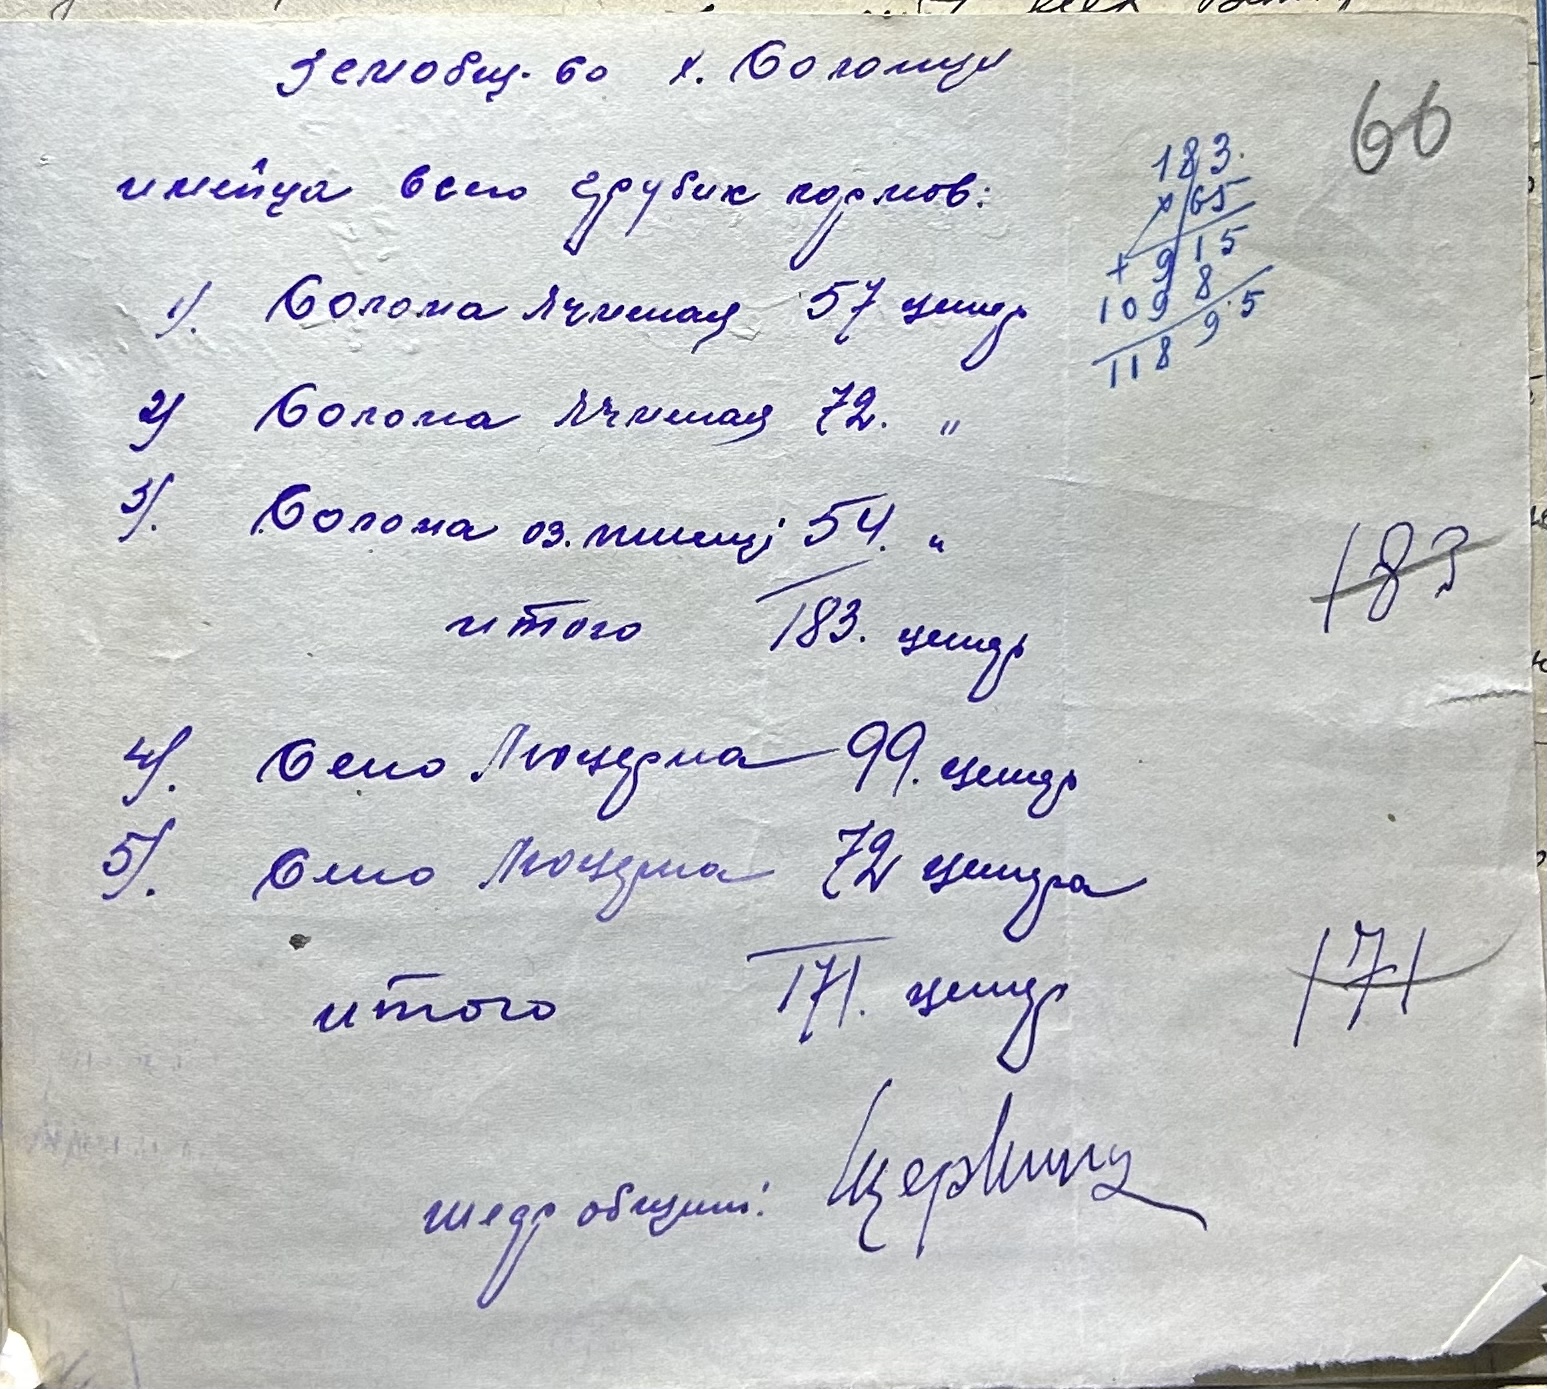 Земобщ-во х. Солонци
66
имейца всего грубих кормов:
1). Солома ячменая 57 центр
2) Солома ячменая 72. "
3). Солома оз. пшениці 54. "
итого 183. центр
183
4). Сено Люцерна 99. центр
5). Сено Люцерна 72 центра
итого 171. центр
171
общини:
183.
× 65
+ 915
1098
1189.5